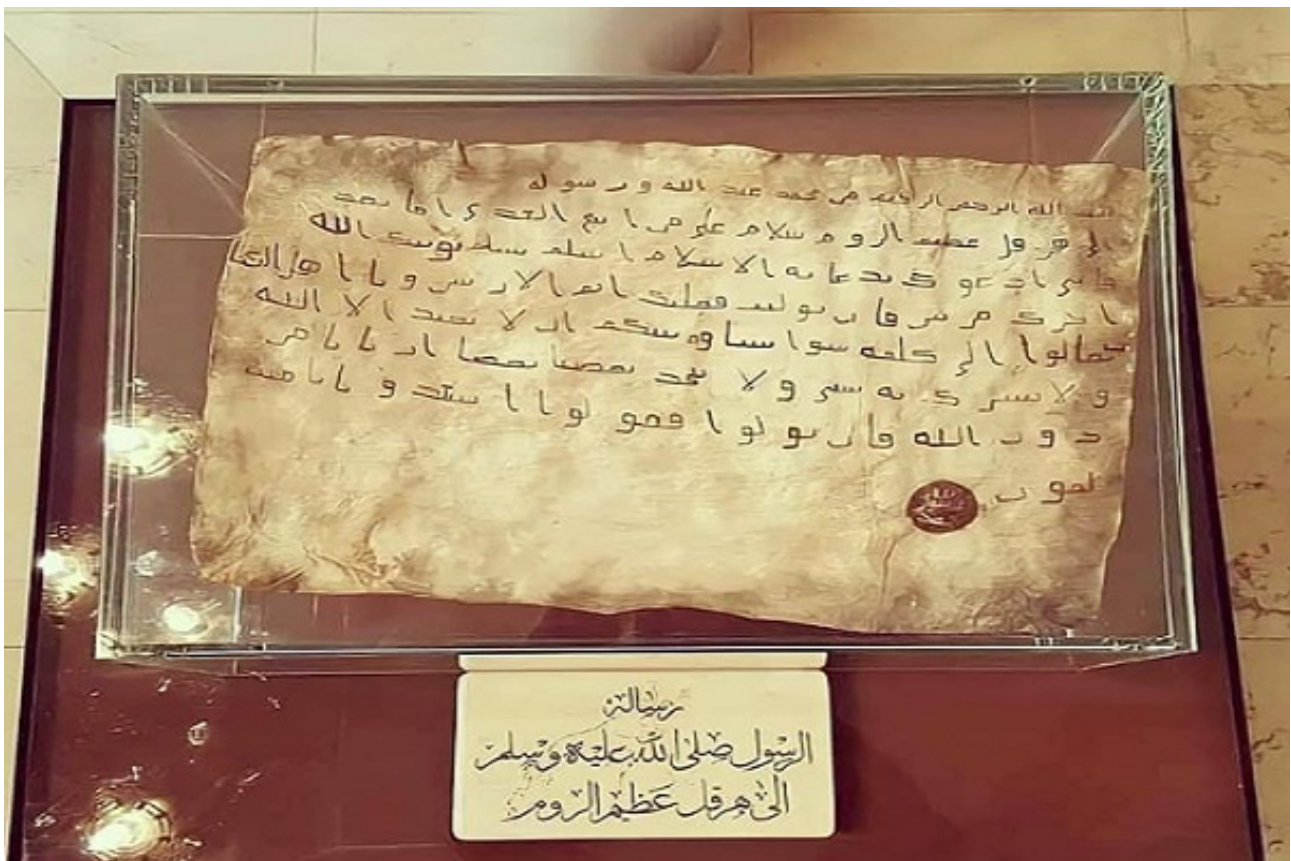 بسم الله الرحمن الرحيم من محمد عبد الله ورسوله
إلى هرقل عظيم الروم سلام على من اتبع الهدى أما بعد
فإني أدعوك بدعاية الإسلام أسلم تسلم يؤتك الله
أجرك مرتين فإن توليت فعليك إثم الأريسيين ويا أهل الكتاب
تعالوا إلى كلمة سواء بيننا وبينكم أن لا نعبد إلا الله
ولا نشرك به شيئا ولا يتخذ بعضنا بعضا أربابا من
دون الله فإن تولوا فقولوا اشهدوا بأنا مسـ
لمون
رسالة
الرسول صلى الله عليه وسلم
إلى هرقل عظيم الروم